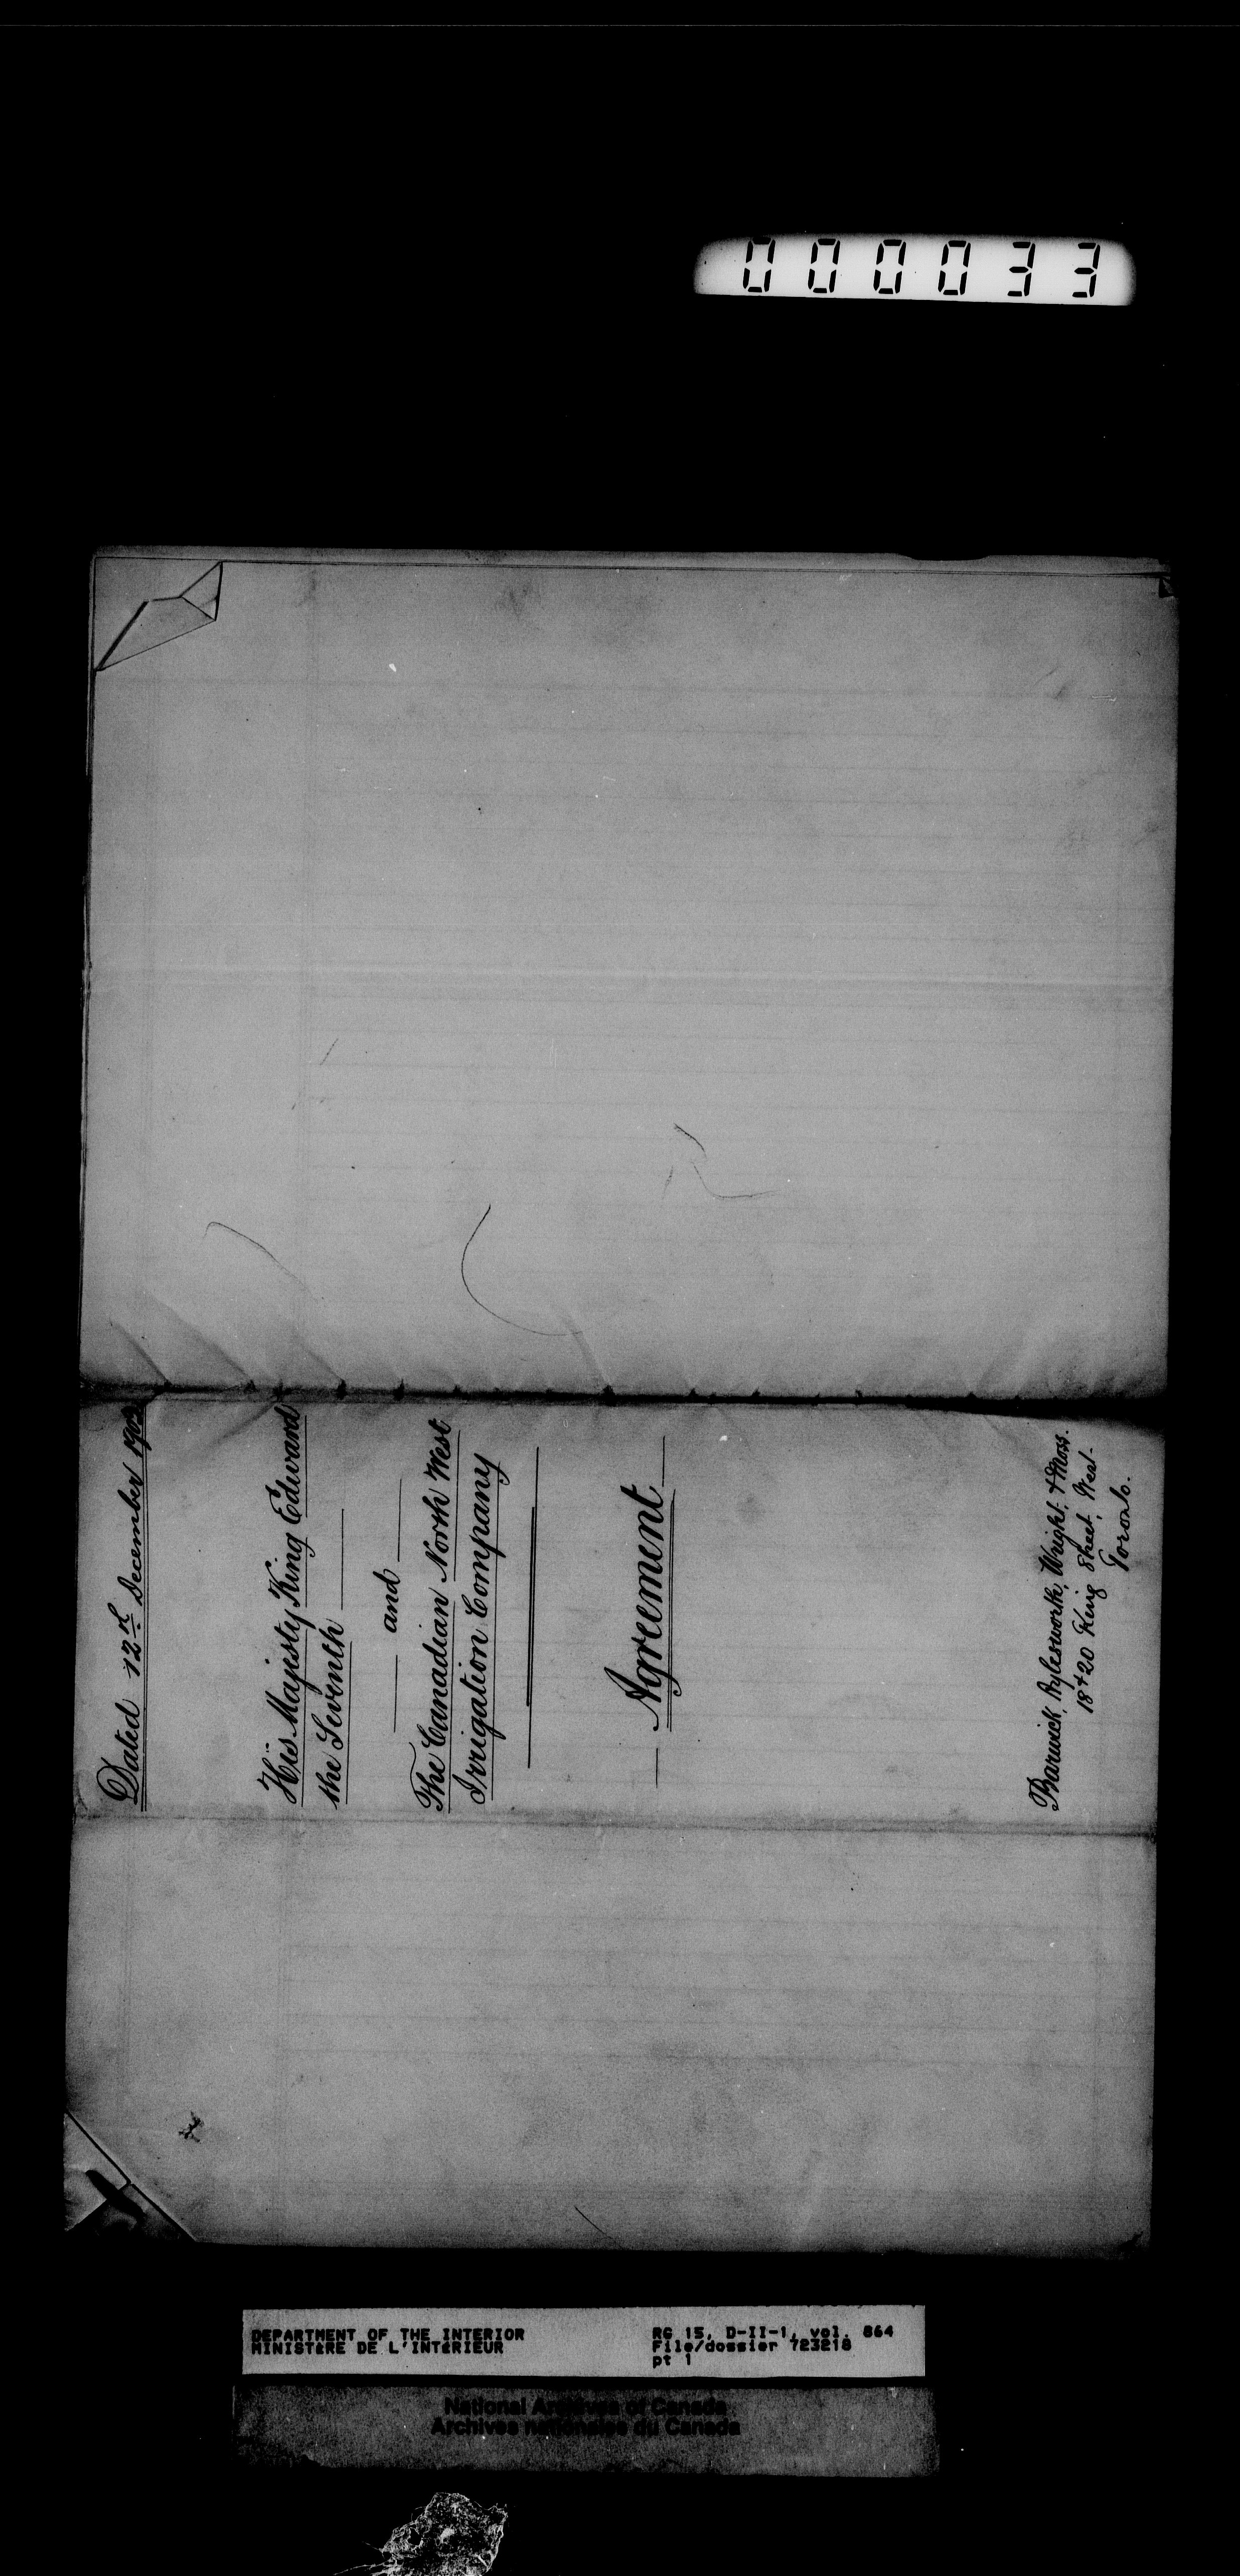 000033
Dated 12th December 1902
His Majesty King Edward
the Seventh
and
The Canadian North West
Irrigation Company
Agreement
Barwick, Aylesworth, Wright & Moss.
18 & 20 King Street, West.
Toronto.
DEPARTMENT OF THE INTERIOR
MINISTÈRE DE L'INTÉRIEUR
RG 15, D-II-1, vol. 864
File/dossier 723218
pt 1
National Archives of Canada
Archives nationales du Canada